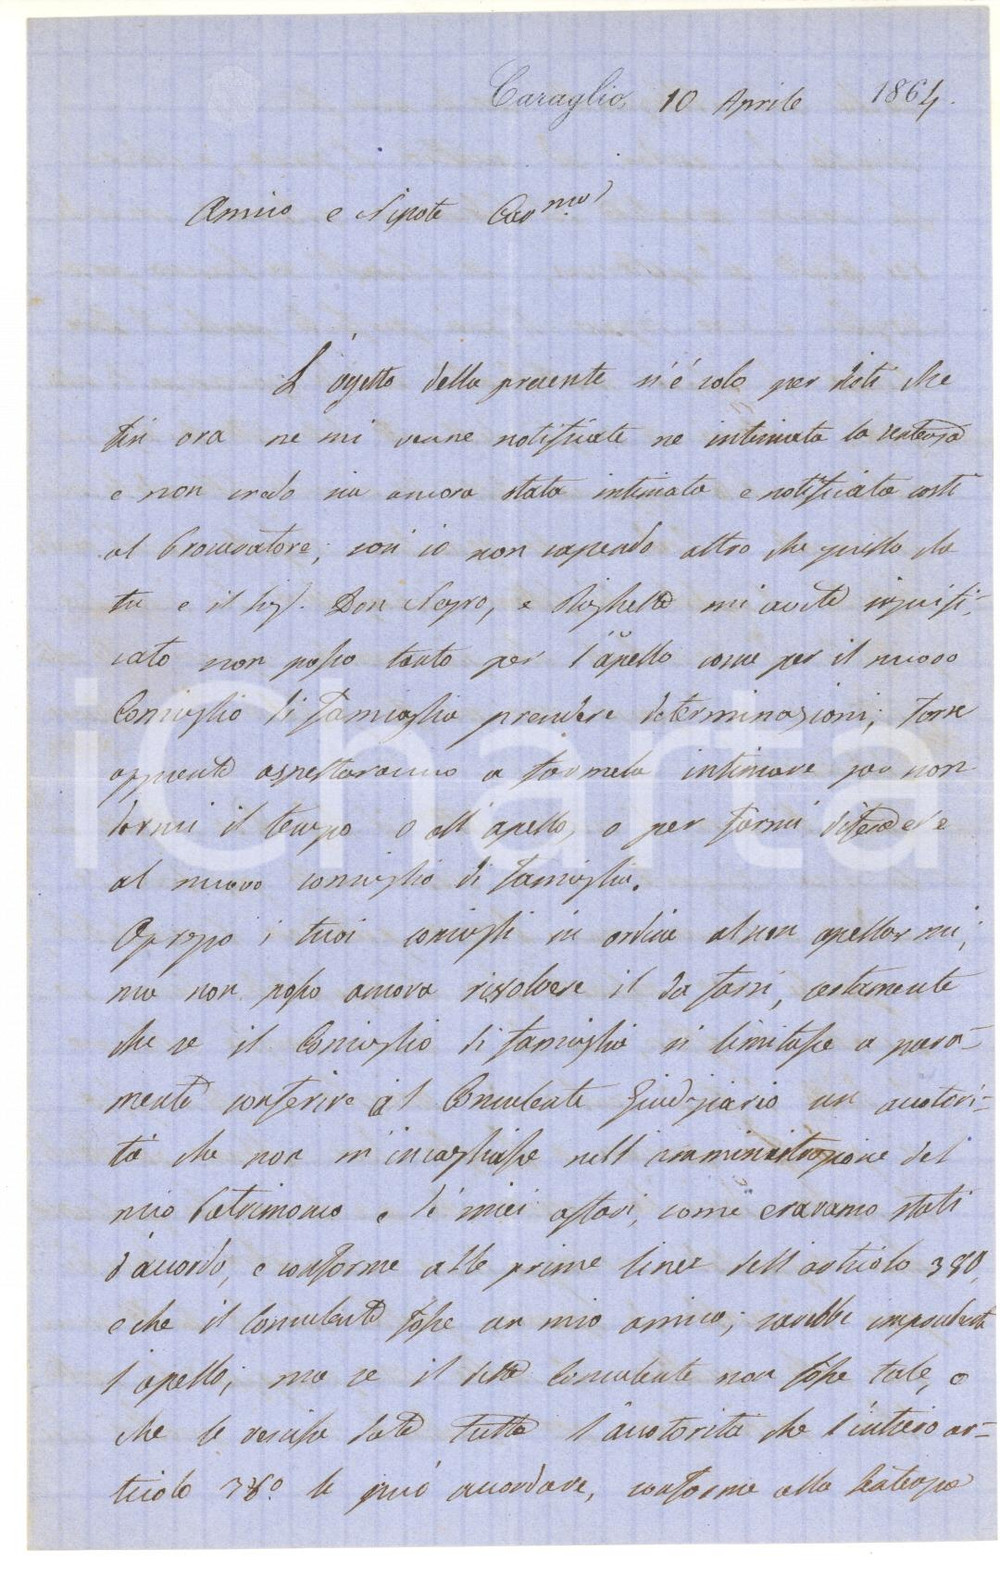 Caraglio, 10 Aprile 1864.
Amico e Nipote Carmo
L'ogetto della presente si è solo per dirti che
fin ora ne mi venne notificata ne intimata la sentenza
e non credo sia ancora stata intimata e notificata costì
al Procuratore; così io non sapendo altro che quello che
tu e il Sigr. Don Negro, e mi avete signifi-
cato non posso tanto per l'apello come per il nuovo
Consiglio di famiglia prendere determinazioni; forse
appunto aspetteranno a farmela intimare per non
darmi il tempo o all'apello, o per farmi diffendere
al nuovo consiglio di famiglia.
Aprezzo i tuoi consigli in ordine al non apellarmi;
ma non posso ancora risolvere il da farsi, certamente
che se il Consiglio di famiglia si limitasse a pura-
mente conferire al Consulente Giudiziario un autori-
tà che non m'incagliasse nell'amministrazione del
mio Patrimonio e de' miei affari, come eravamo stati
d'accordo, e conforme alle prime linee dell'articolo 380,
e che il Consulente fosse un mio amico; sarebbe imprudente
l'apello; ma se il detto Consulente non fosse tale, o
che le venisse data tutta l'autorità che l'intiero ar-
ticolo 38° le può accordare, conforme alla Sentenza